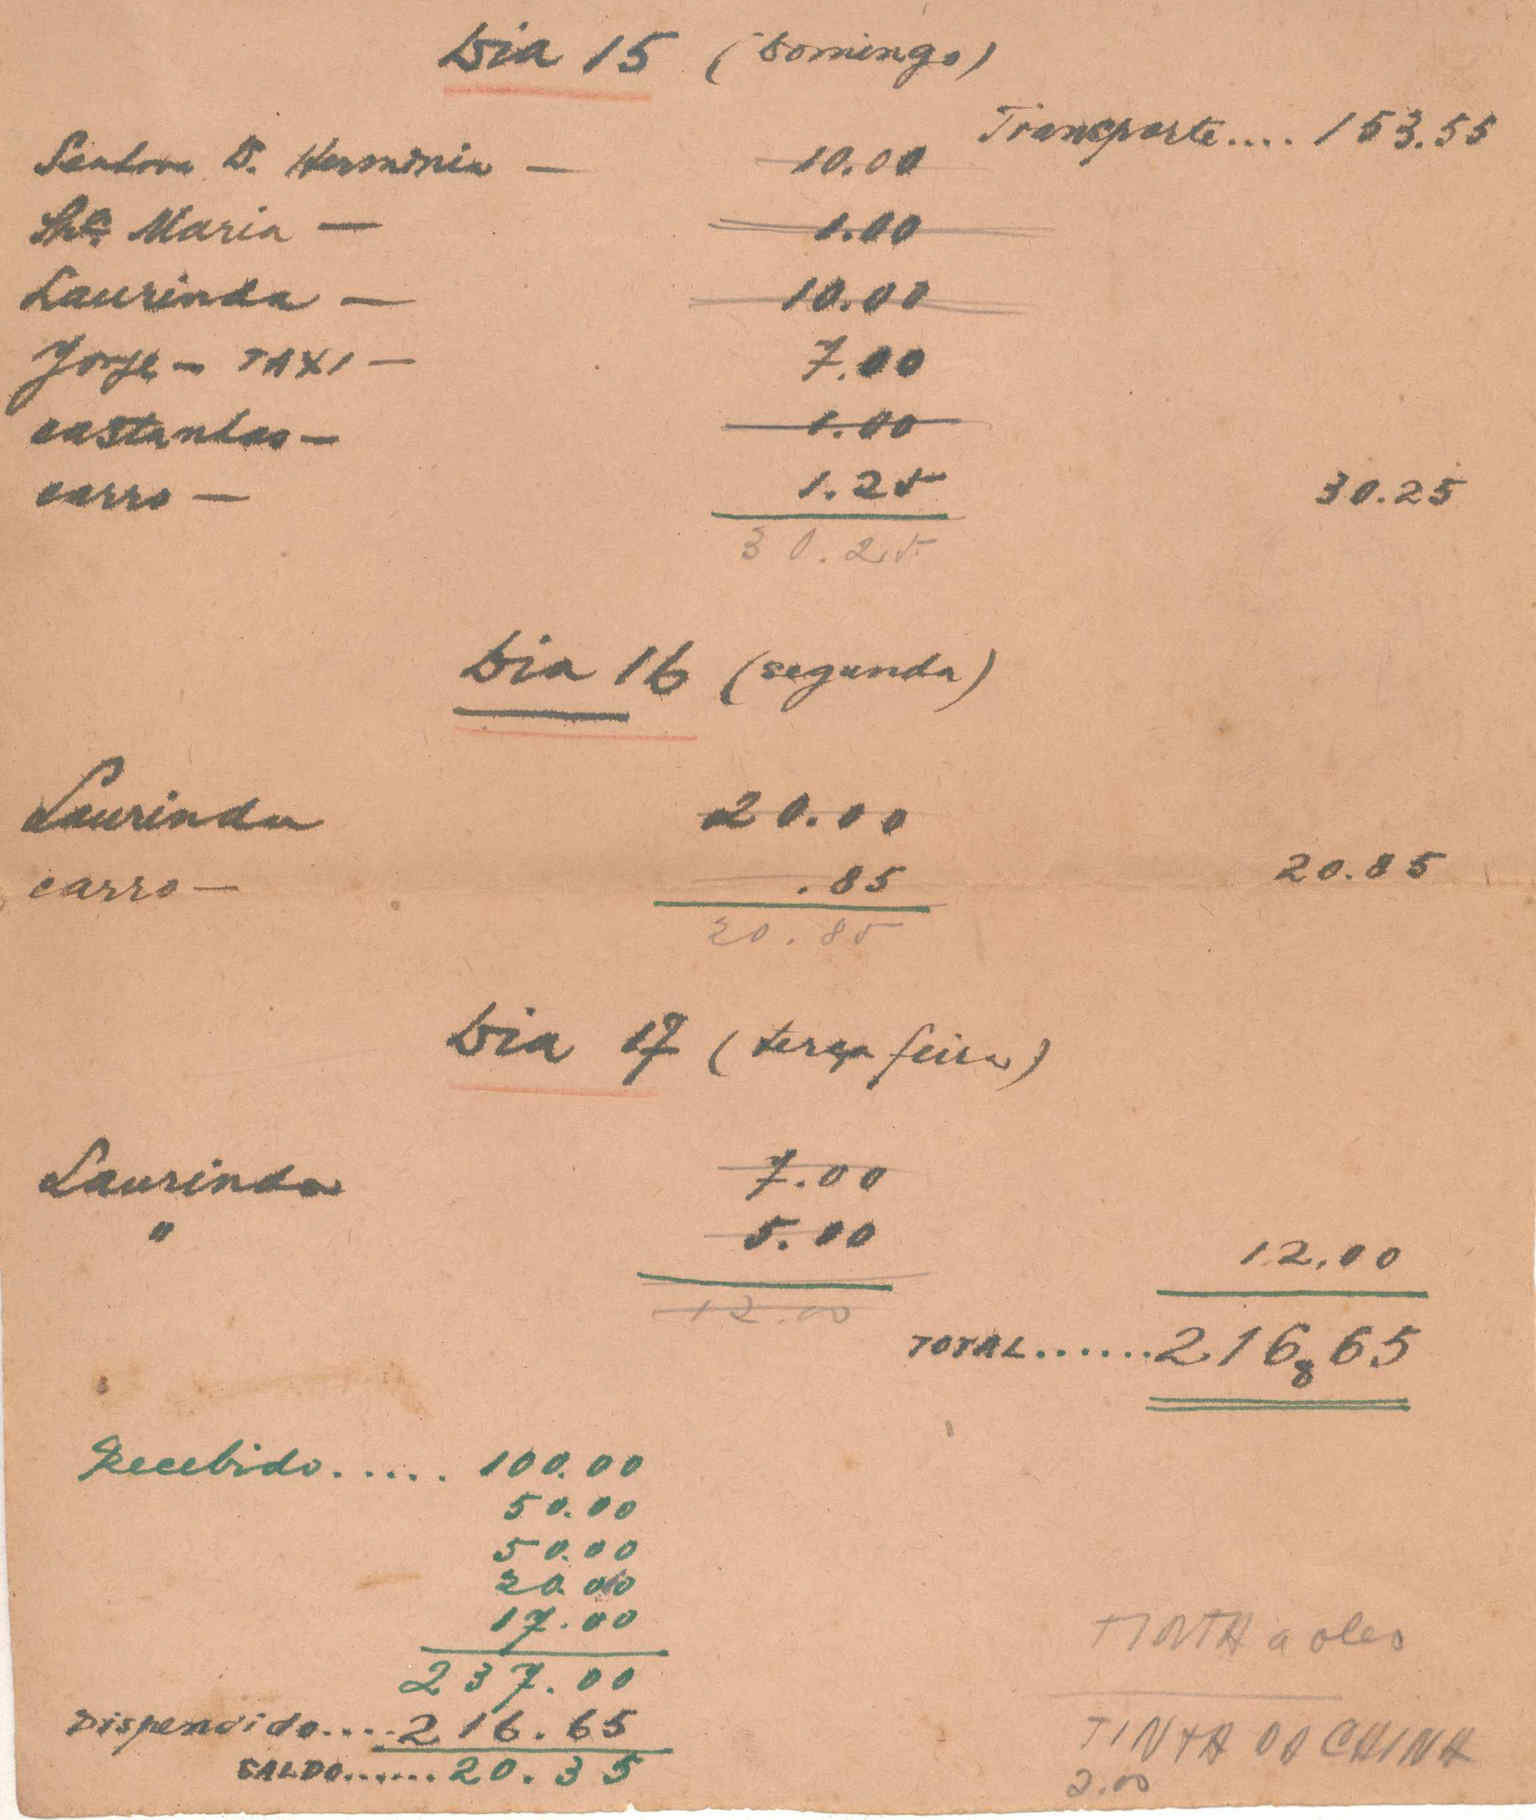 Dia 15 (Domingo)
Transporte.... 153.55
Senhora D. Herminia — 10.00
Snra Maria — 1.00
Laurinda — 10.00
Jorge - TAXI — 7.00
castanhas — 1.00
carro — 1.25 30.25
30.25
Dia 16 (segunda)
Laurinda 20.00
carro — .85 20.85
20.85
Dia 17 (terça feira)
Laurinda 7.00
" 5.00 12.00
12.00
TOTAL...... 216,65
Recebido..... 100.00
50.00
50.00
20.00
17.00
237.00
Dispendido.... 216.65
SALDO...... 20.35
TINTA a oleo
TINTA DA CHINA
2.00